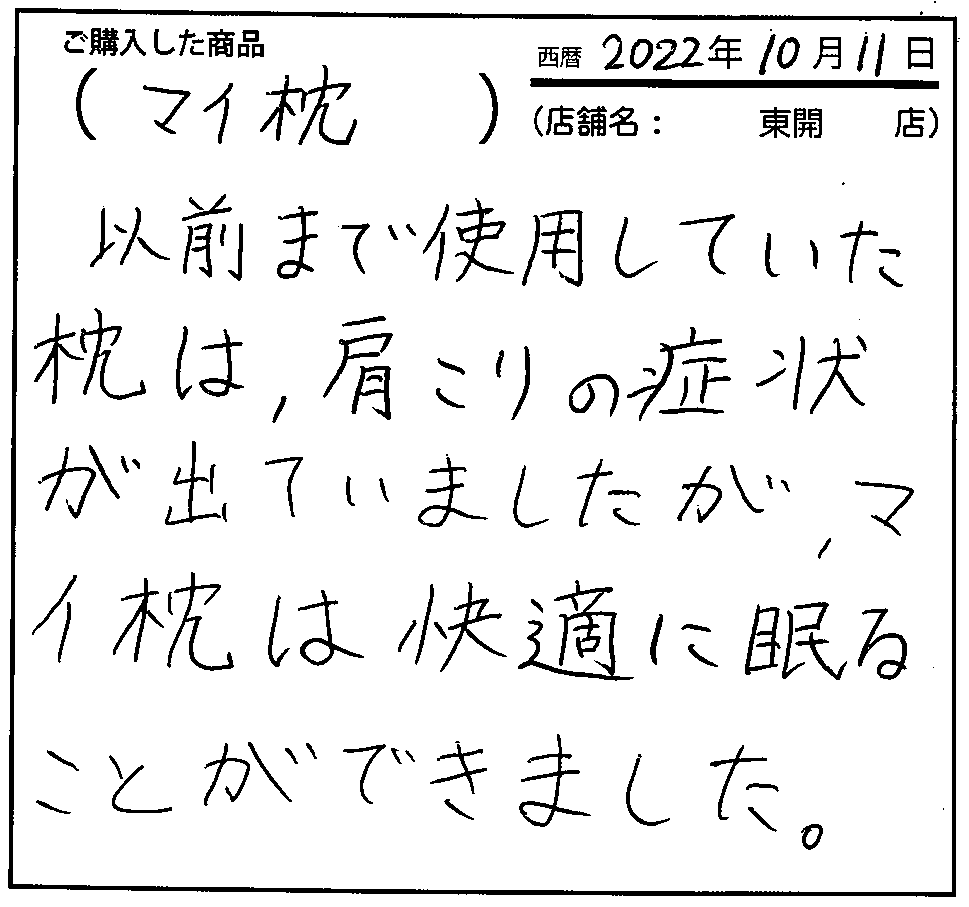 ご購入した商品
(マイ枕)
西暦 2022年10月11日
(店舗名: 東開 店)
以前まで使用していた
枕は,肩こりの症状
が出ていましたが,マ
イ枕は快適に眠る
ことができました。